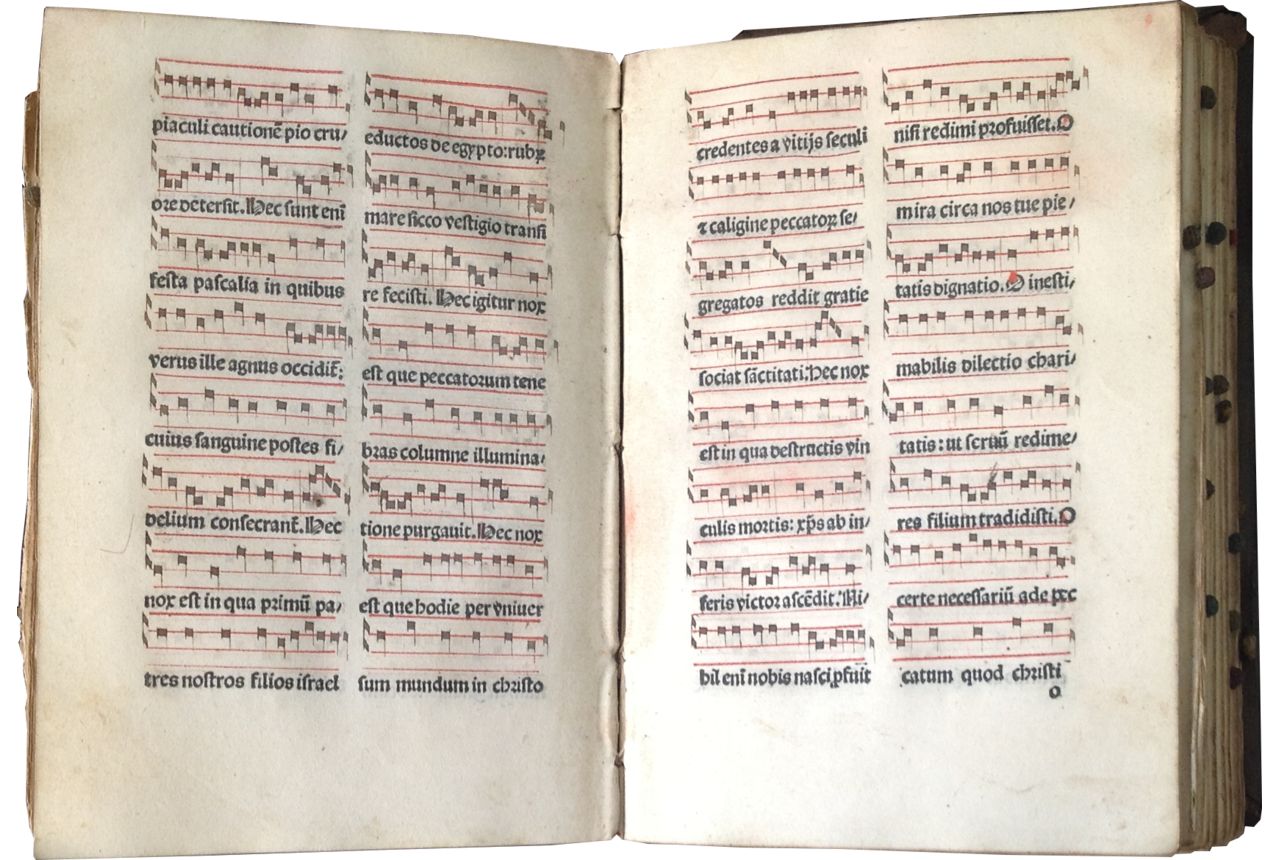 piaculi cautionē pio cru/
ore detersit. Hec sunt enī
festa paschalia in quibus
verus ille agnus occidit̄:
cuius sanguine postes fi/
delium consecrant̄. Hec
nox est in qua primū pa/
tres nostros filios israel
eductos de egypto: rubꝝ
mare sicco vestigio transi
re fecisti. Hec igitur nox
est que peccatorum tene
bras columne illumina/
tione purgauit. Hec nox
est que hodie per vniuer
sum mundum in christo
credentes a vitijs seculi
⁊ caligine peccatoꝝ se/
gregatos reddit gratie
sociat sāctitati. Hec nox
est in qua destructis vin
culis mortis: xp̄s ab in/
feris victor ascēdit. Ni/
hil enī nobis nasci ꝓfuit
nisi redimi profuisset. O
mira circa nos tue pie/
tatis dignatio. O inesti/
mabilis dilectio chari/
tatis: ut seruū redime/
res filium tradidisti. O
certe necessariū ade pec
catum quod christi
o